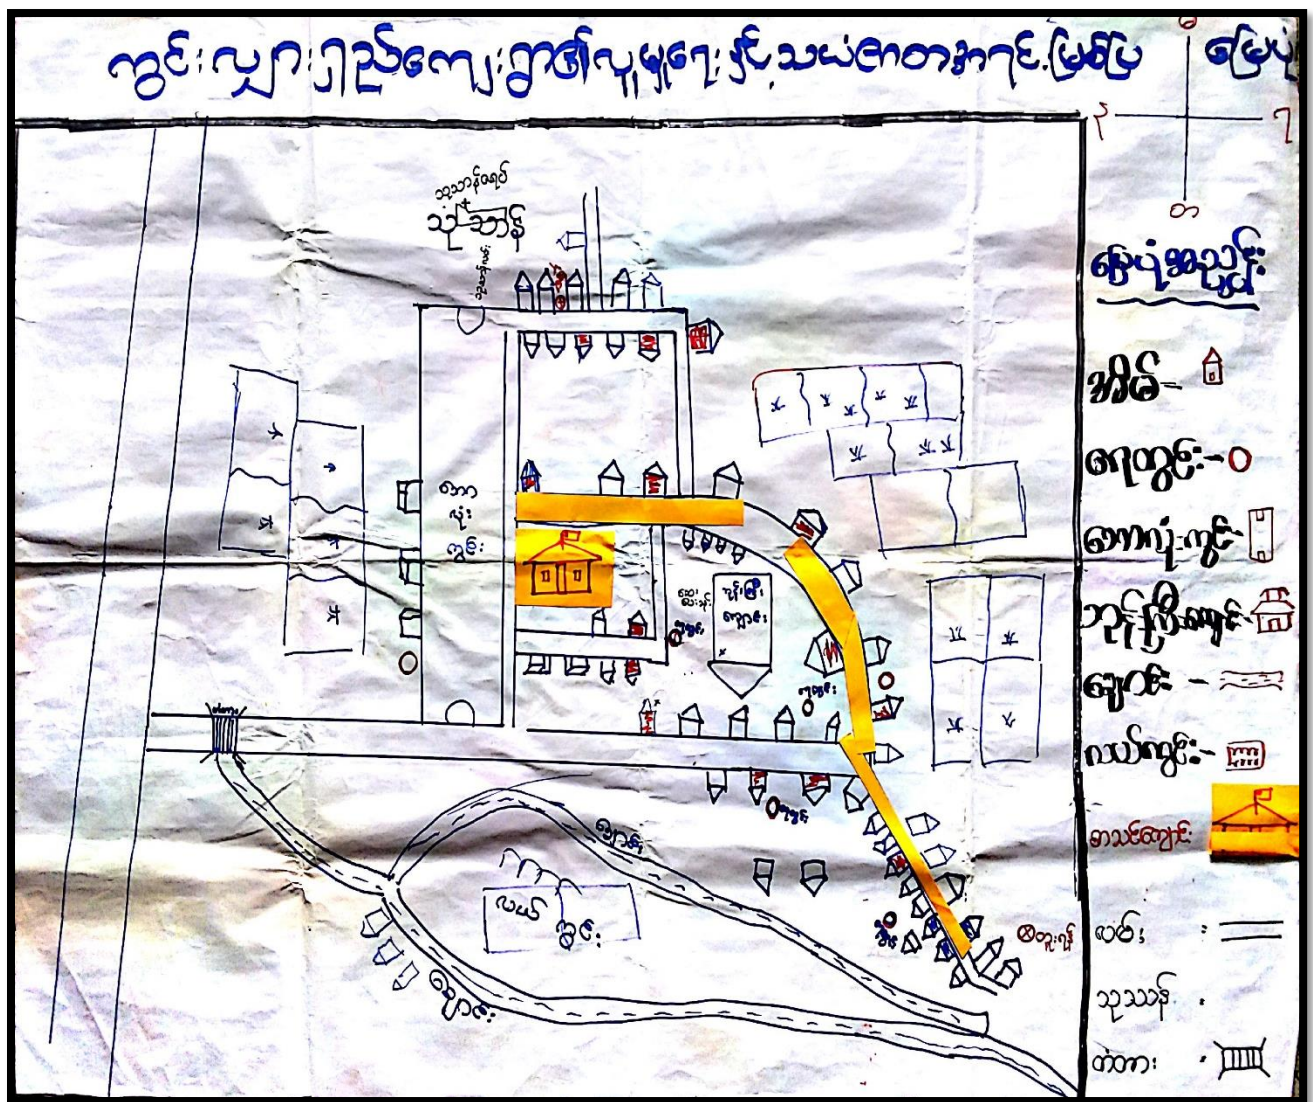 ကွင်းလျှာရှည်ကျေးရွာ၏လူမှုရေးနှင့်သယံဇာတအရင်းမြစ်ပြ မြေပုံ
သုသာန်ဇရပ်
သုသာန်
ဘော
လုံး
ကွင်း
ဘုန်းကြီး
ကျောင်း
ရေတွင်း
ရေတွင်း
ရေတွင်း
တံတား
ချောင်း
လယ်
ကွင်း
ချောင်း
တ
မြေပုံအညွှန်း
အိမ် -
ရေတွင်း -
ဘောလုံးကွင်း -
ဘုန်းကြီးကျောင်း -
ချောင်း -
လယ်ကွင်း -
စာသင်ကျောင်း
လမ်း :
သုသာန် :
တံတား :